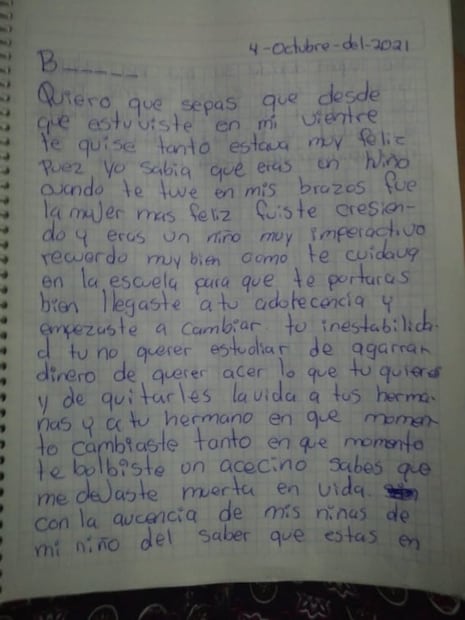 4-Octubre-del-2021
B_____
Quiero que sepas que desde
que estuviste en mi vientre
te quise tanto estava muy feliz
puez yo sabia que eras un niño
cuando te tuve en mis brazos fue
la mujer mas feliz fuiste cresien-
do y eras un niño muy imperactivo
recuerdo muy bien como te cuidava
en la escuela para que te portaras
bien llegaste a tu adolecencia y
empezaste a cambiar. tu inestabilida-
d tu no querer estudiar de agarrar
dinero de querer acer lo que tu quieres
y de quitarles la vida a tus herma-
nas y a tu hermano en que momen-
to cambiaste tanto en que momento
te bolbiste un acecino sabes que
me dejaste muerta en vida.
con la aucencia de mis niñas de
mi niño del saber que estas en